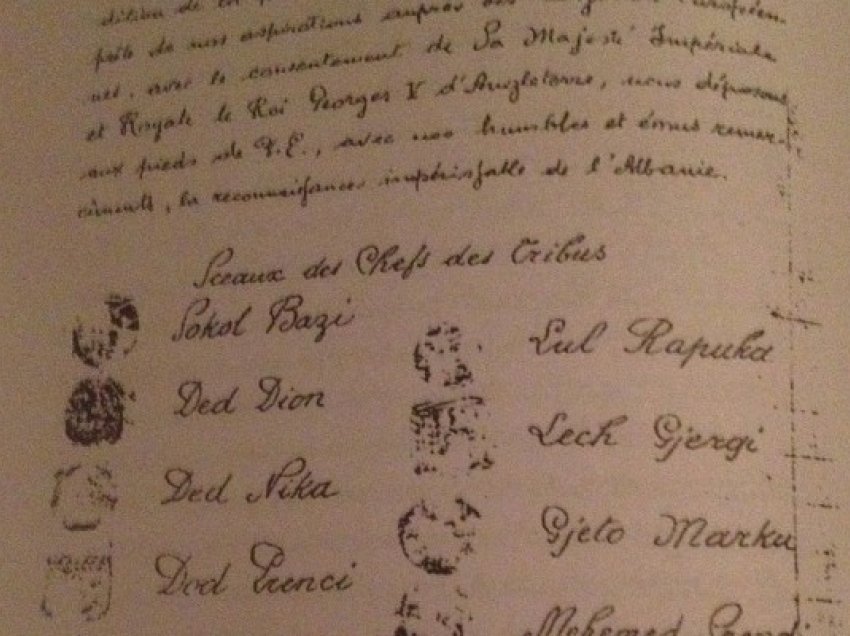 de
prète de nos aspirations auprès des
nes, avec le consentement de Sa Majesté Impériale
et Royale le Roi Georges V d'Angleterre, nous déposons
aux pieds de V. E., avec nos humbles et émus remer-
ciments, la reconnaissance impérissable de l'Albanie.
Sceaux des Chefs des Tribus
Sokol Bazi
Ded Dion
Ded Nika
Dod Prenci
Lul Rapuka
Lech Gjergi
Gjeto Marku
Mehemed